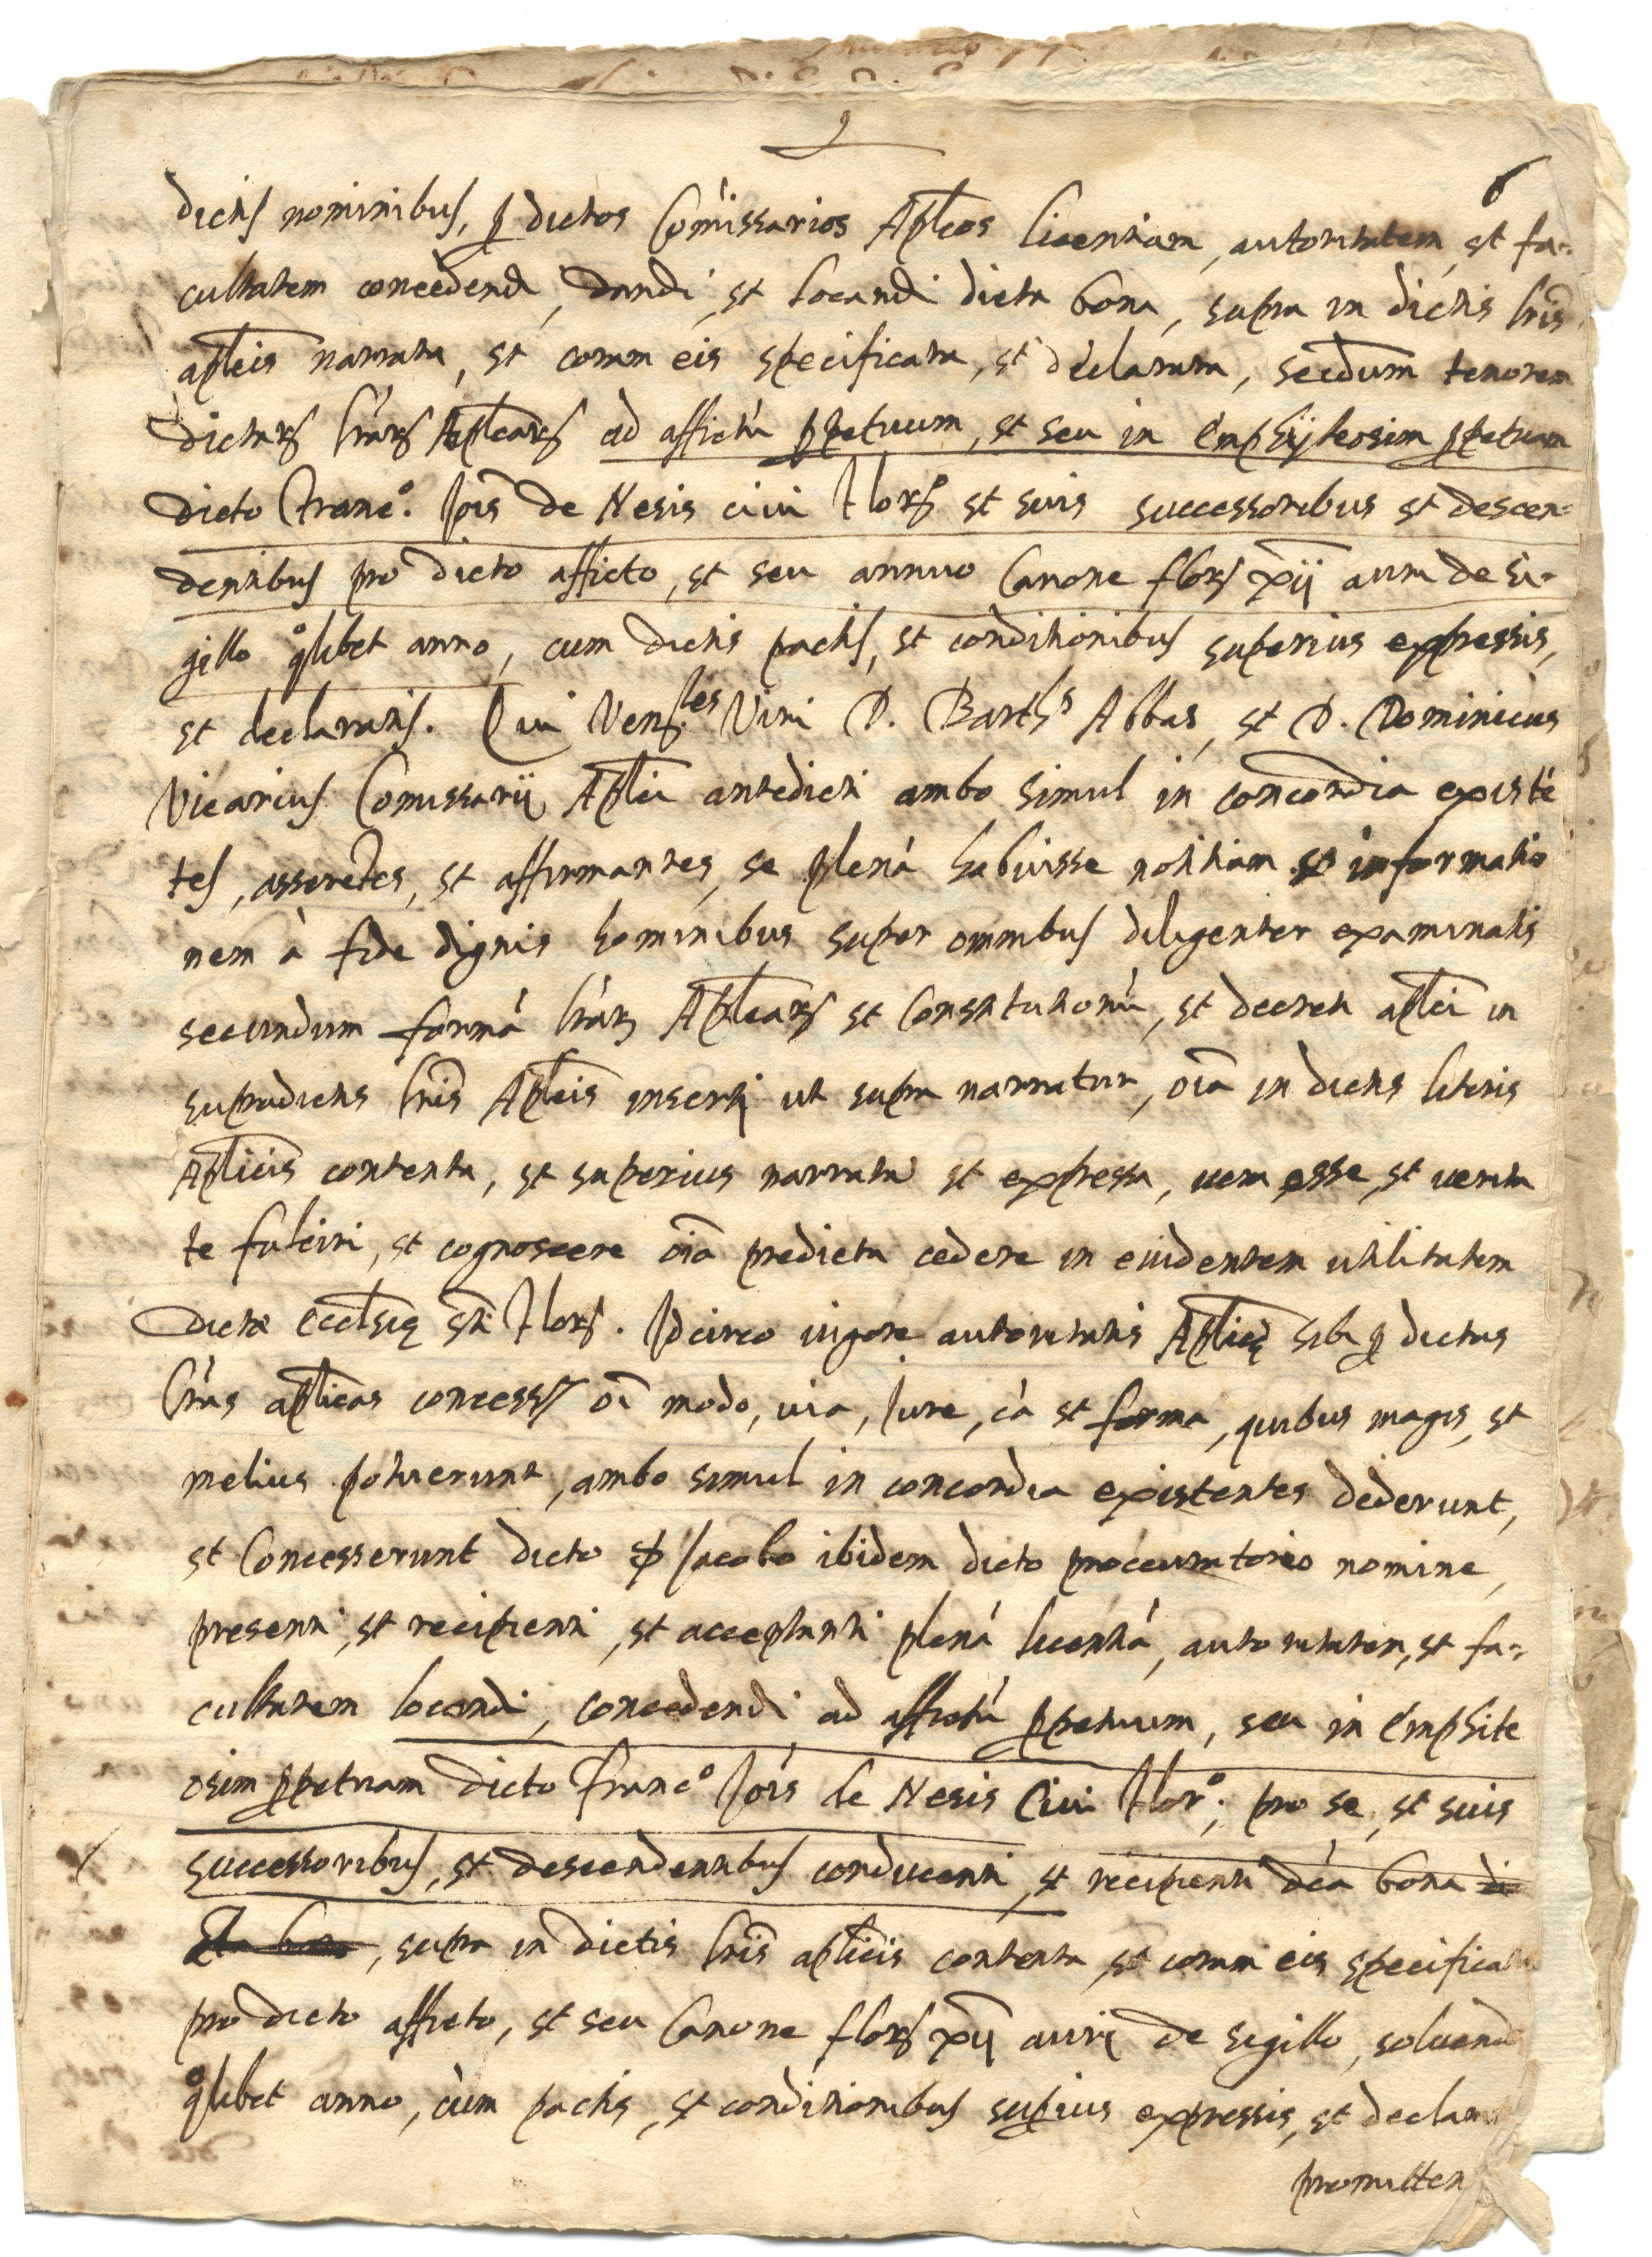 6
dictis nominibus, ꝑ dictos Com̃issarios Apl̃cos licentiam, autoritatem, et fa=
cultatem concedendi, dandi, et locandi dicta bona, supra in dictis lr̃is
apl̃cis narrata, et coram eis specificata, et declarata, secd̃um tenorem
dictarꝫ lr̃arꝫ Apl̃carꝫ ad affictũ ꝑpetuum, et seu in Emphÿteosim ꝑpetuam
dicto Franc.º Joĩs de Nesis civi Florꝫ et suis successoribus et descen=
dentibus pro dicto afficto, et seu annuo Canone florꝫ xij auri de si=
gillo qº̃libet anno, cum dictis pactis, et conditionibus superius expressis,
et declaratis. Qui Venles Viri D. Barths Abbas, et D. Dominicus
Vicarius Comissarij Apl̃ci antedicti ambo simul in concordia existẽ
tes, asseretes, et affirmantes, se plenã habuisse notitiam et informatio
nem à fide dignis hominibus super omnibus diligenter examinatis
secundum formã lr̃arꝫ Apl̃carꝫ et Constitutionũ, et decreti apl̃ci in
supradictis lr̃is Apl̃cis inserti ut supra narratur, oĩa in dictis literis
Apl̃icis contenta, et superius narrata et expressa, vera esse, et verita
te fulciri, et cognoscere oĩa predicta cedere in evidentem utilitatem
dictæ eccl̃się Sti Florꝫ. Idcirco vigore autoritatis Apl̃icę sibi ꝑ dictas
lr̃as apl̃icas concessę oĩ modo, via, Jure, cã et forma, quibus magis, et
melius potuerunt, ambo simul in concordia existentes dederunt,
et Concesserunt dicto S. Jacobo ibidem dicto procuratorio nomine,
presenti, et recipienti, et acceptanti plenã licentiã, autoritatem, et fa=
cultatem locandi, concedendi ad affictũ ꝑpetuum, seu in Emphite
osim ꝑpetuam dicto Francº Joĩs de Nesis Civi Flor.º; pro se, et suis
successoribus, et descendentibus conducenti, et recipienti dc̃a bona di
cta bona, supra in dictis lr̃is apl̃icis contenta, et coram eis specificata
pro dicto afficto, et seu Canone florꝫ xij auri de sigillo, solvend
qº̃libet anno, cum pactis, et conditionibus supius expressis, et declarat
promitten